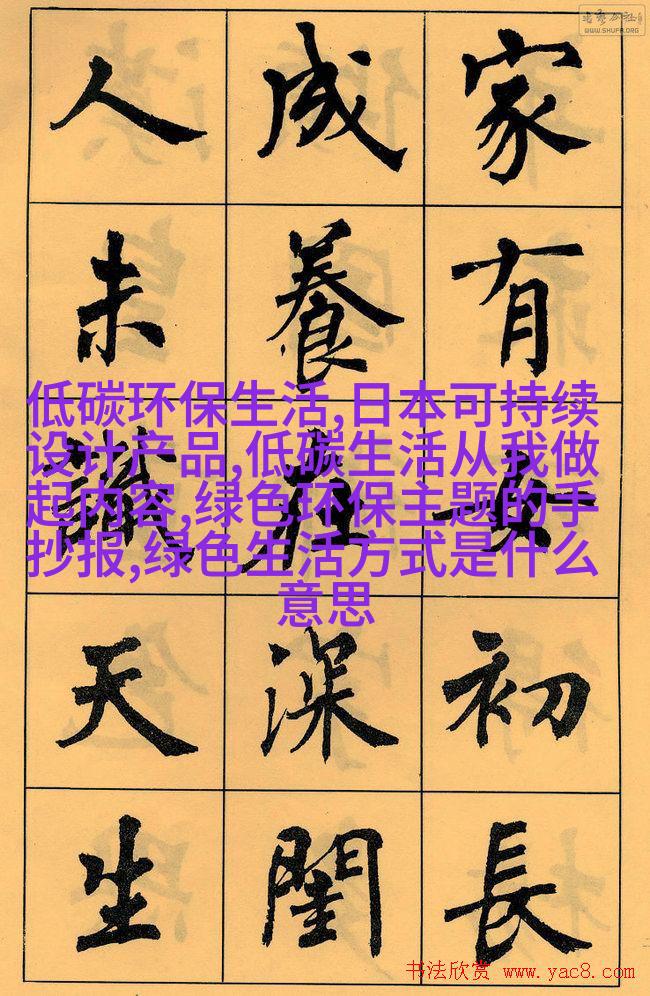 WWW.SHUFA.ORG
家有女初長
成養在深閨
人未識天生
低碳环保生活,日本可持续
设计产品,低碳生活从我做
起内容,绿色环保主题的手
抄报,绿色生活方式是什么
意思
书法欣赏 www.yac8.com